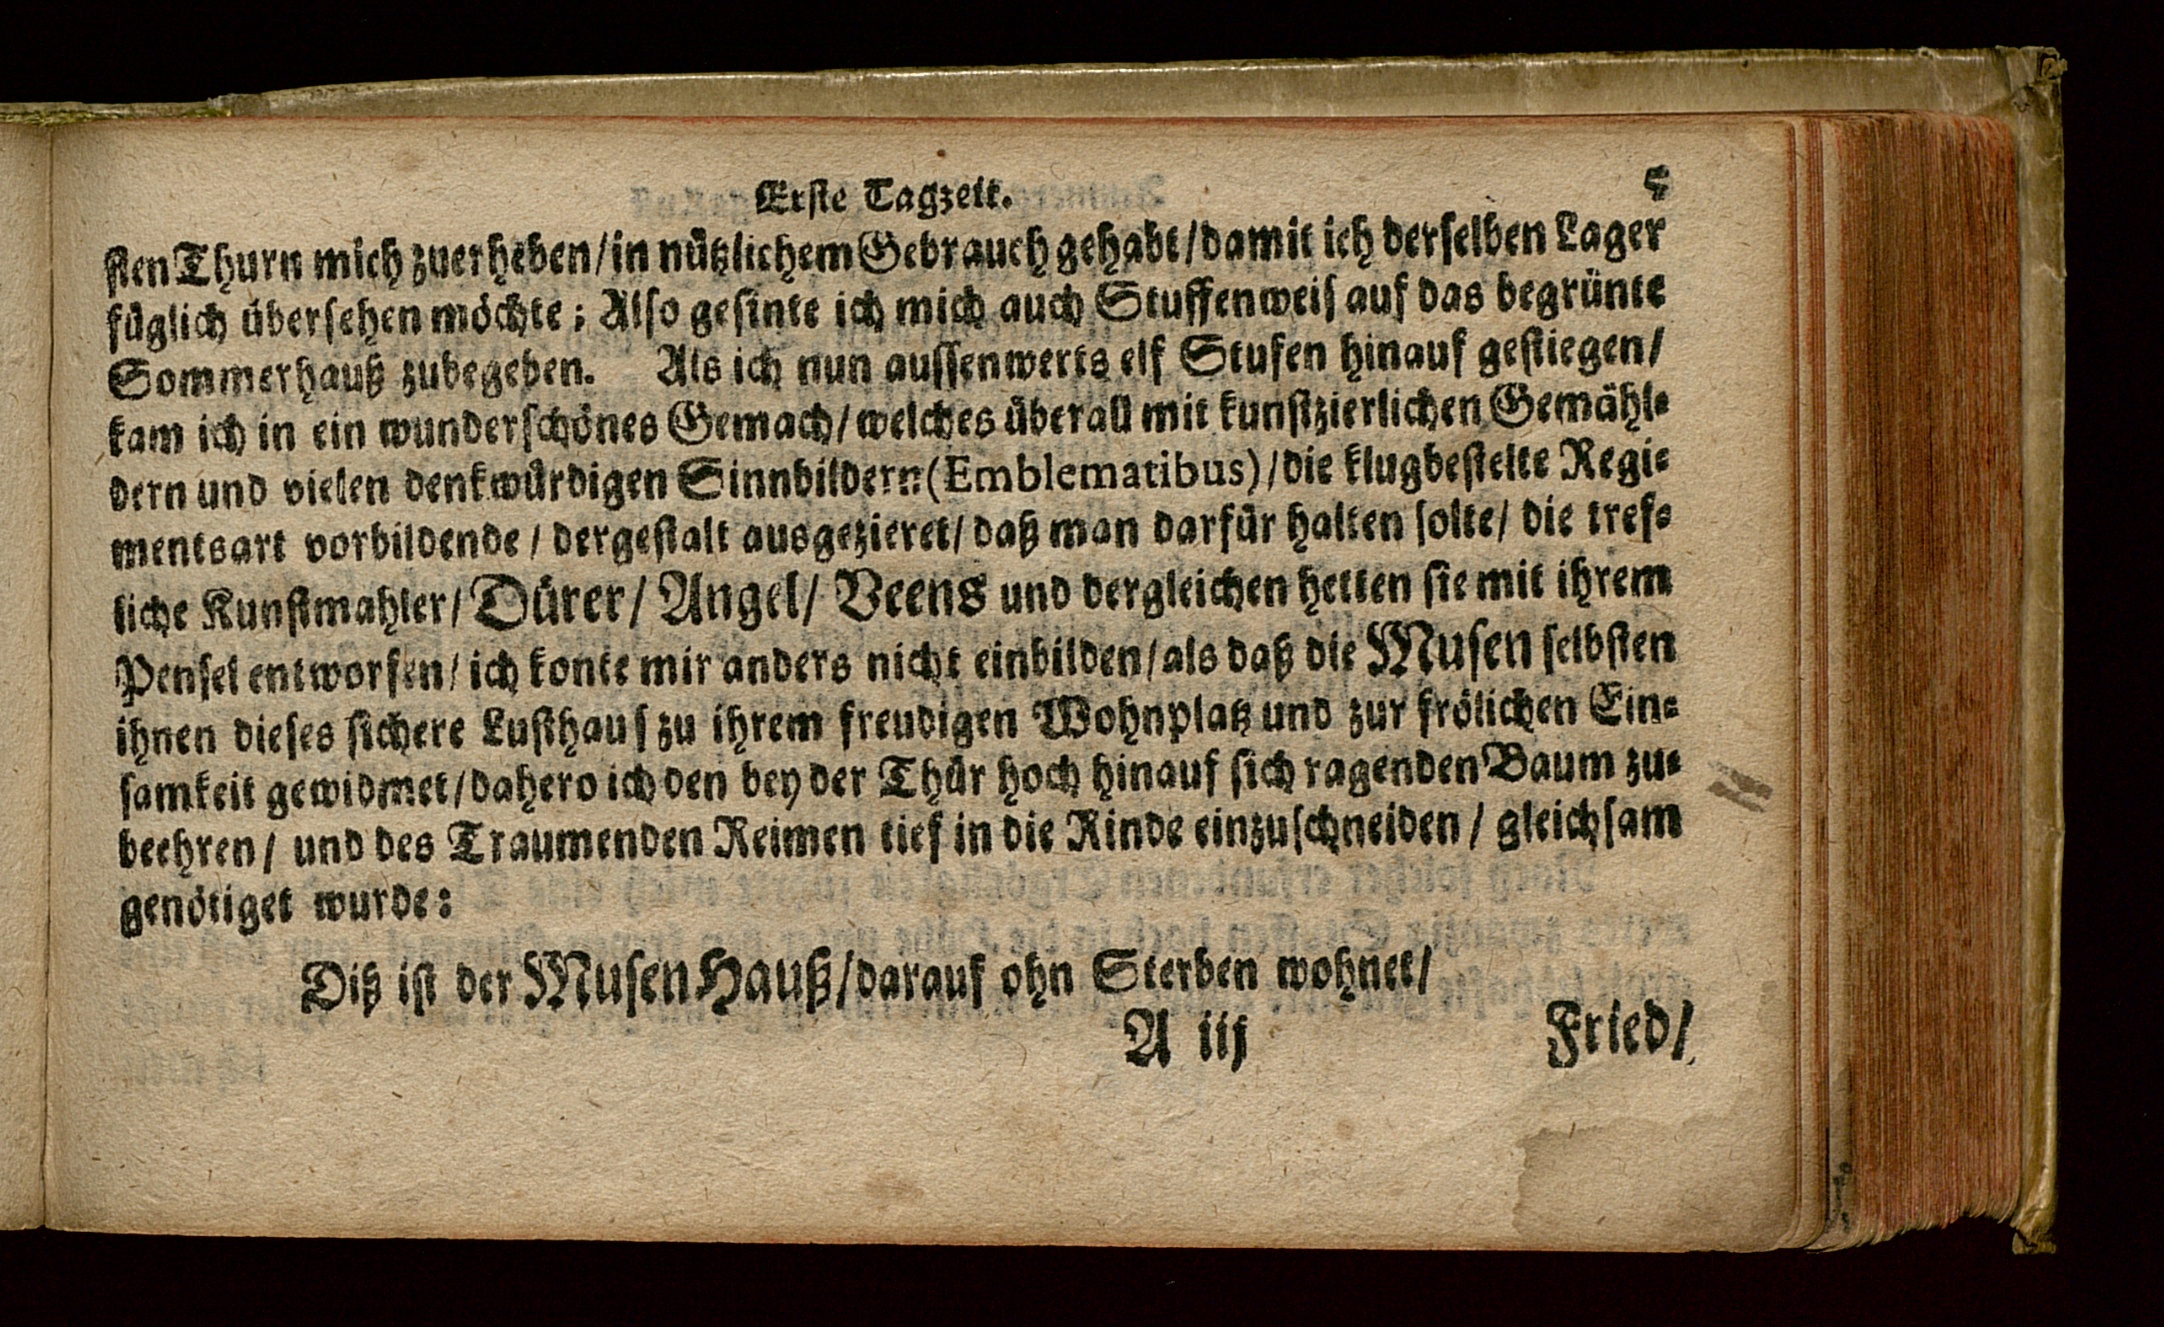 Erste Tagzeit. 5
sten Thurn mich zuerheben/in nützlichem Gebrauch gehabt/damit ich derselben Lager
füglich übersehen möchte; Also gesinte ich mich auch Stuffenweis auf das begrünte
Sommerhauß zubegeben. Als ich nun aussenwerts elf Stufen hinauf gestiegen/
kam ich in ein wunderschönes Gemach/welches überall mit kunstzierlichen Gemähl-
dern und vielen denkwürdigen Sinnbildern(Emblematibus)/die klugbestelte Regi-
mentsart vorbildende/dergestalt ausgezieret/daß man darfür halten solte/die tref-
liche Kunstmahler/Dürer/Angel/Veens und dergleichen hetten sie mit ihrem
Pensel entworfen/ich konte mir anders nicht einbilden/als daß die Musen selbsten
ihnen dieses sichere Lusthaus zu ihrem freudigen Wohnplatz und zur frölichen Ein-
samkeit gewidmet/dahero ich den bey der Thür hoch hinauf sich ragenden Baum zu-
beehren/und des Traumenden Reimen tief in die Rinde einzuschneiden/gleichsam
genötiget wurde:
Diß ist der Musen Hauß/darauf ohn Sterben wohnet/
A iij Fried/